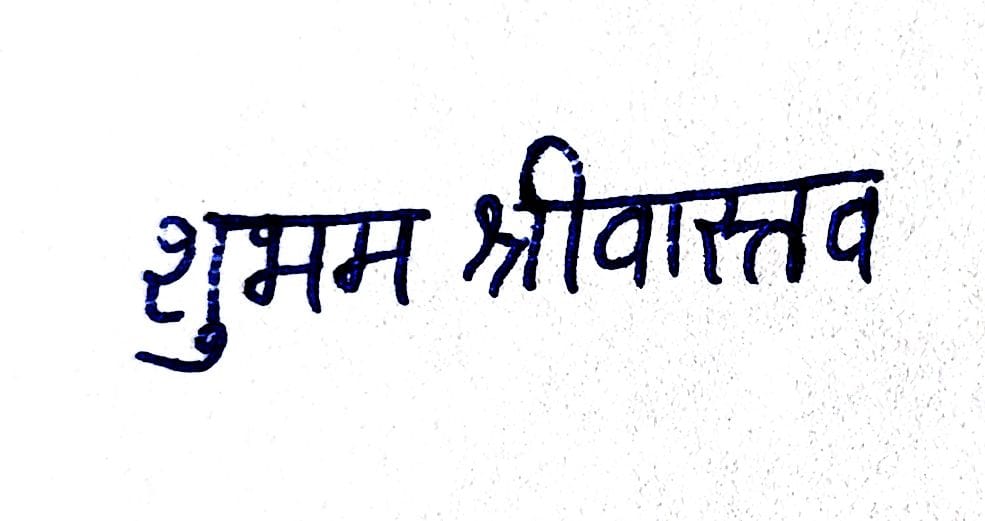 शुभम श्रीवास्तव